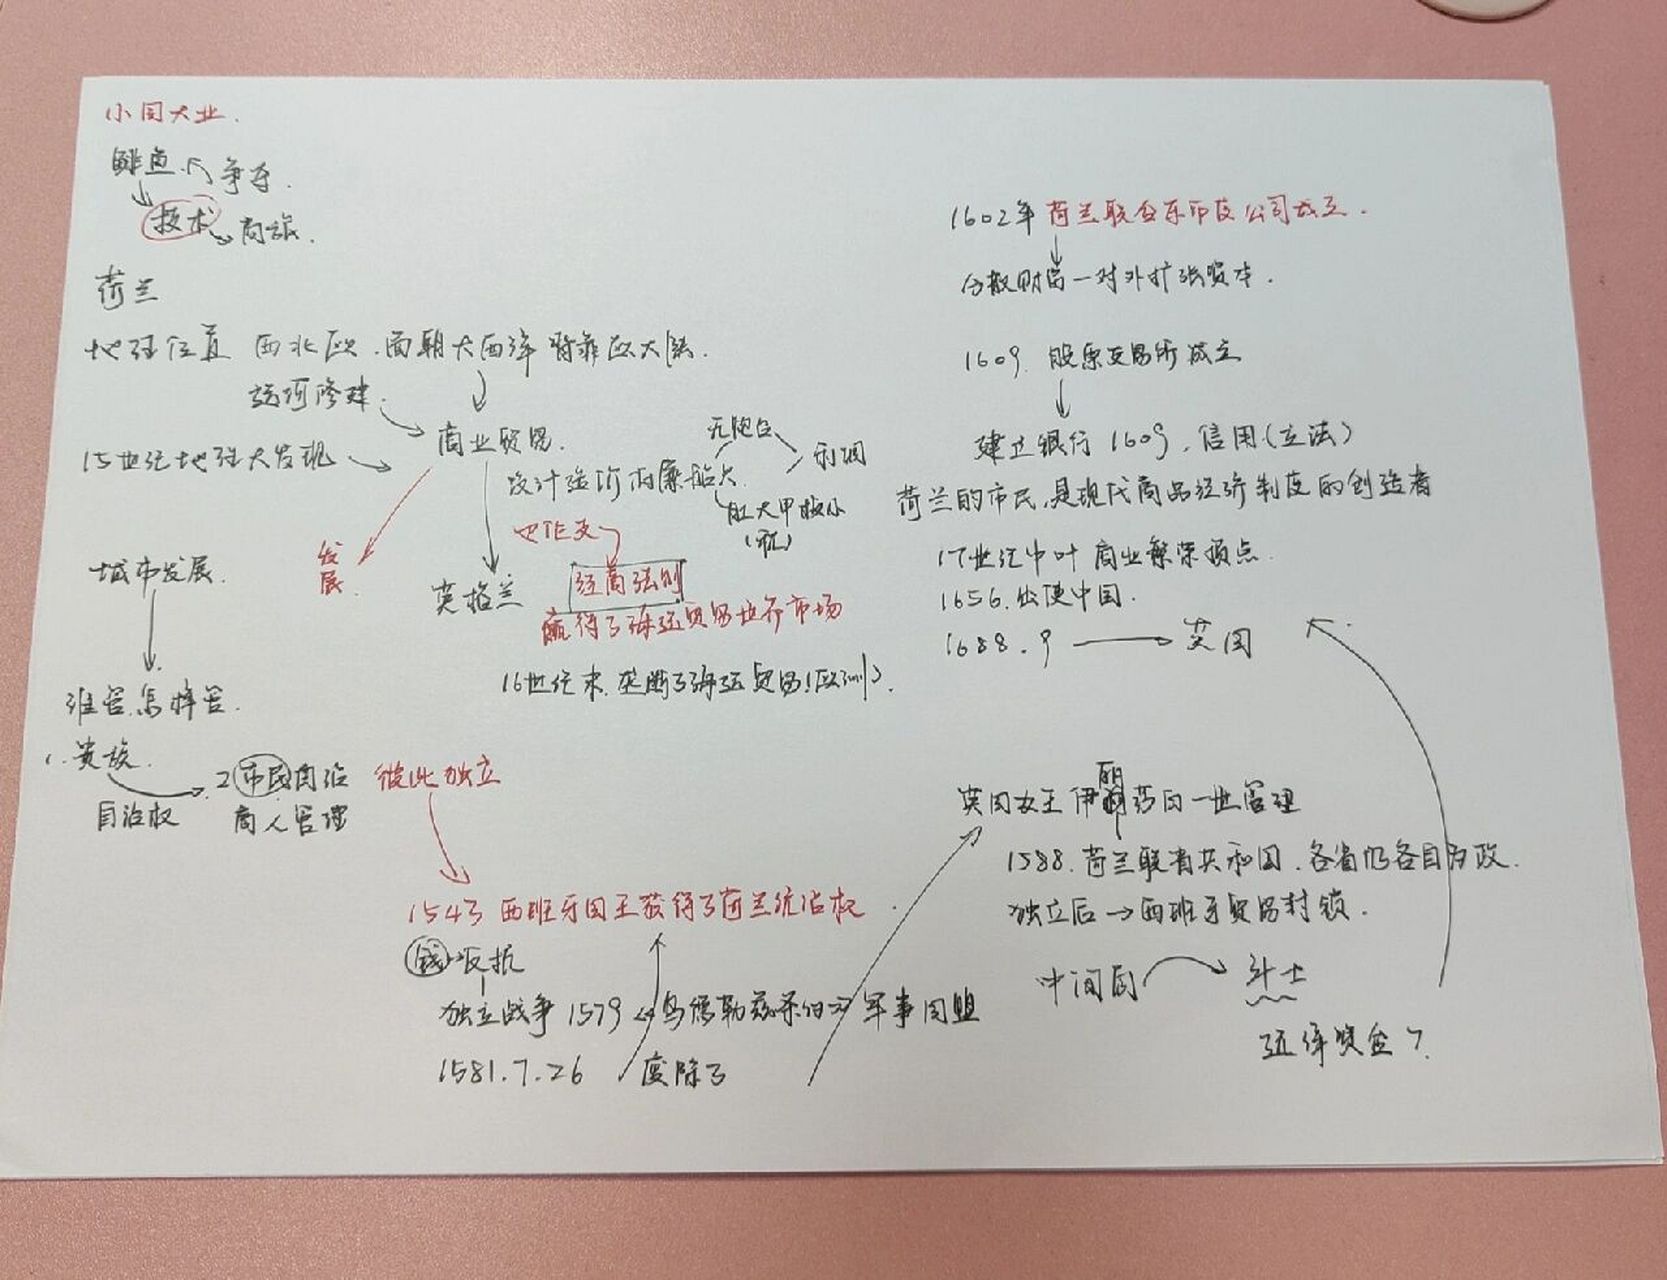 小国大业.
鲱鱼 争夺.
技术 商旅.
荷兰
地理位置 西北欧.面朝大西洋 背靠欧大陆.
运河修建.
15世纪地理大发现
商业贸易.
无炮台
利润
设计造价低廉船只.
肚大甲板小
(税)
发展.
英格兰
经商法则
赢得了海运贸易世界市场
16世纪末.垄断了海运贸易(欧洲).
城市发展.
谁管.怎样管.
1.贵族.
自治权
2市民自治
商人管理
彼此独立
1543 西班牙国王获得了荷兰统治权
钱 反抗
独立战争 1579 乌德勒支 军事同盟
1581.7.26 废除了
1602年 荷兰联合东印度公司成立.
分散财富—对外扩张资本.
1609. 股票交易所成立
建立银行 1609.信用(立法)
荷兰的市民,是现代商品经济制度的创造者
17世纪中叶 商业繁荣顶点.
1656.出使中国.
1688.9 英国
英国女王 伊丽莎白一世管理
1588.荷兰联省共和国.各省仍各自为政.
独立后→西班牙贸易封锁.
中间商 斗士
远洋资金?